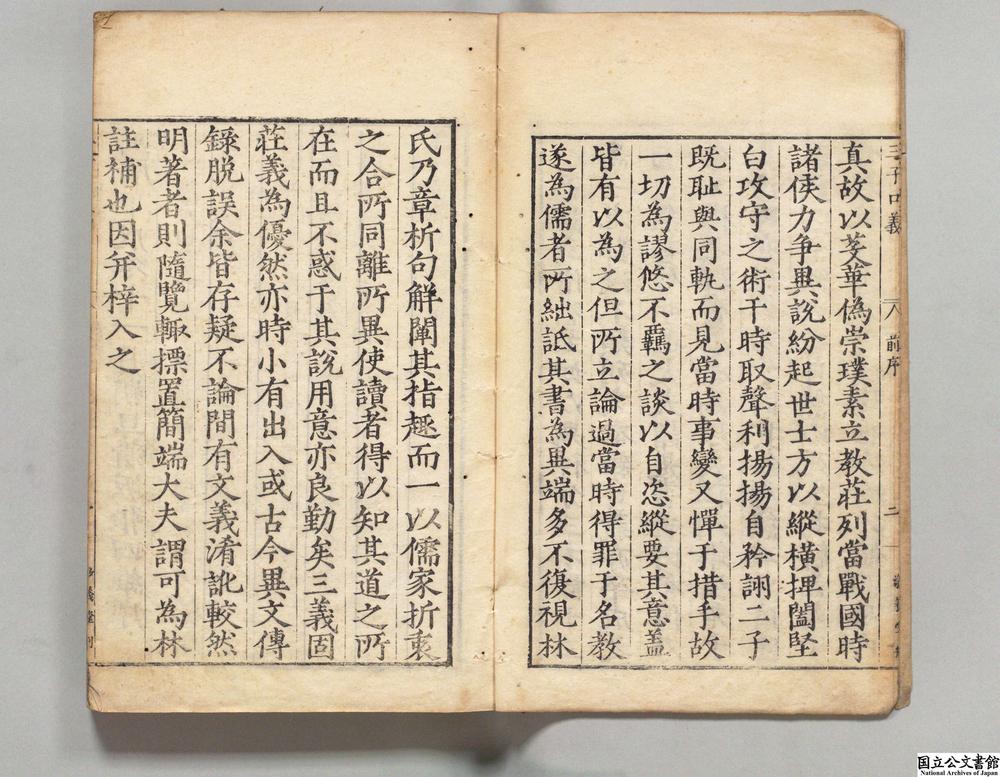 三子口義 前序 二
真故以芟華偽崇璞素立教莊列當戰國時
諸侯力争異說紛起世士方以縱橫捭闔堅
白攻守之術干時取聲利揚揚自矜詡二子
既耻與同軌而見當時事變又憚于措手故
一切為謬悠不羈之談以自恣縱要其意盖
皆有以為之但所立論過當時得罪于名教
遂為儒者所絀詆其書為異端多不復視林
氏乃章析句解闡其指趣而一以儒家折衷
之合所同離所異使讀者得以知其道之所
在而且不惑于其說用意亦良勤矣三義固
莊義為優然亦時小有出入或古今異文傳
錄脱誤余皆存疑不論間有文義淆訛較然
明著者則隨覽輙摽置簡端大夫謂可為林
註補也因并梓入之
国立公文書館
National Archives of Japan